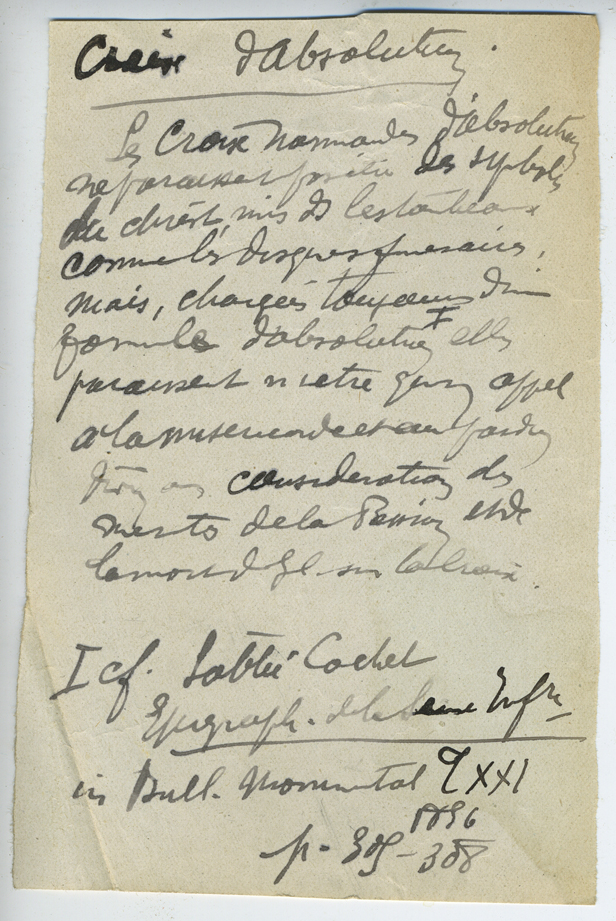 Croix d'Absolution.
Les Croix normandes d'absolution
ne paraissent pas être des symboles
du christ, mis ds les tombeaux
comme les disques funéraires,
mais, chargées toujours d'une
formule d'absolution I elles
paraissent n'être qu'un appel
à la miséricorde et au pardon
en considération des
mérites de la Passion et de
la mort d sur la croix.
I cf. l'abbé Cochet
Epigraph. de la Seine Infre
in Bull. Monumental T XXI
1856
p. 309-308